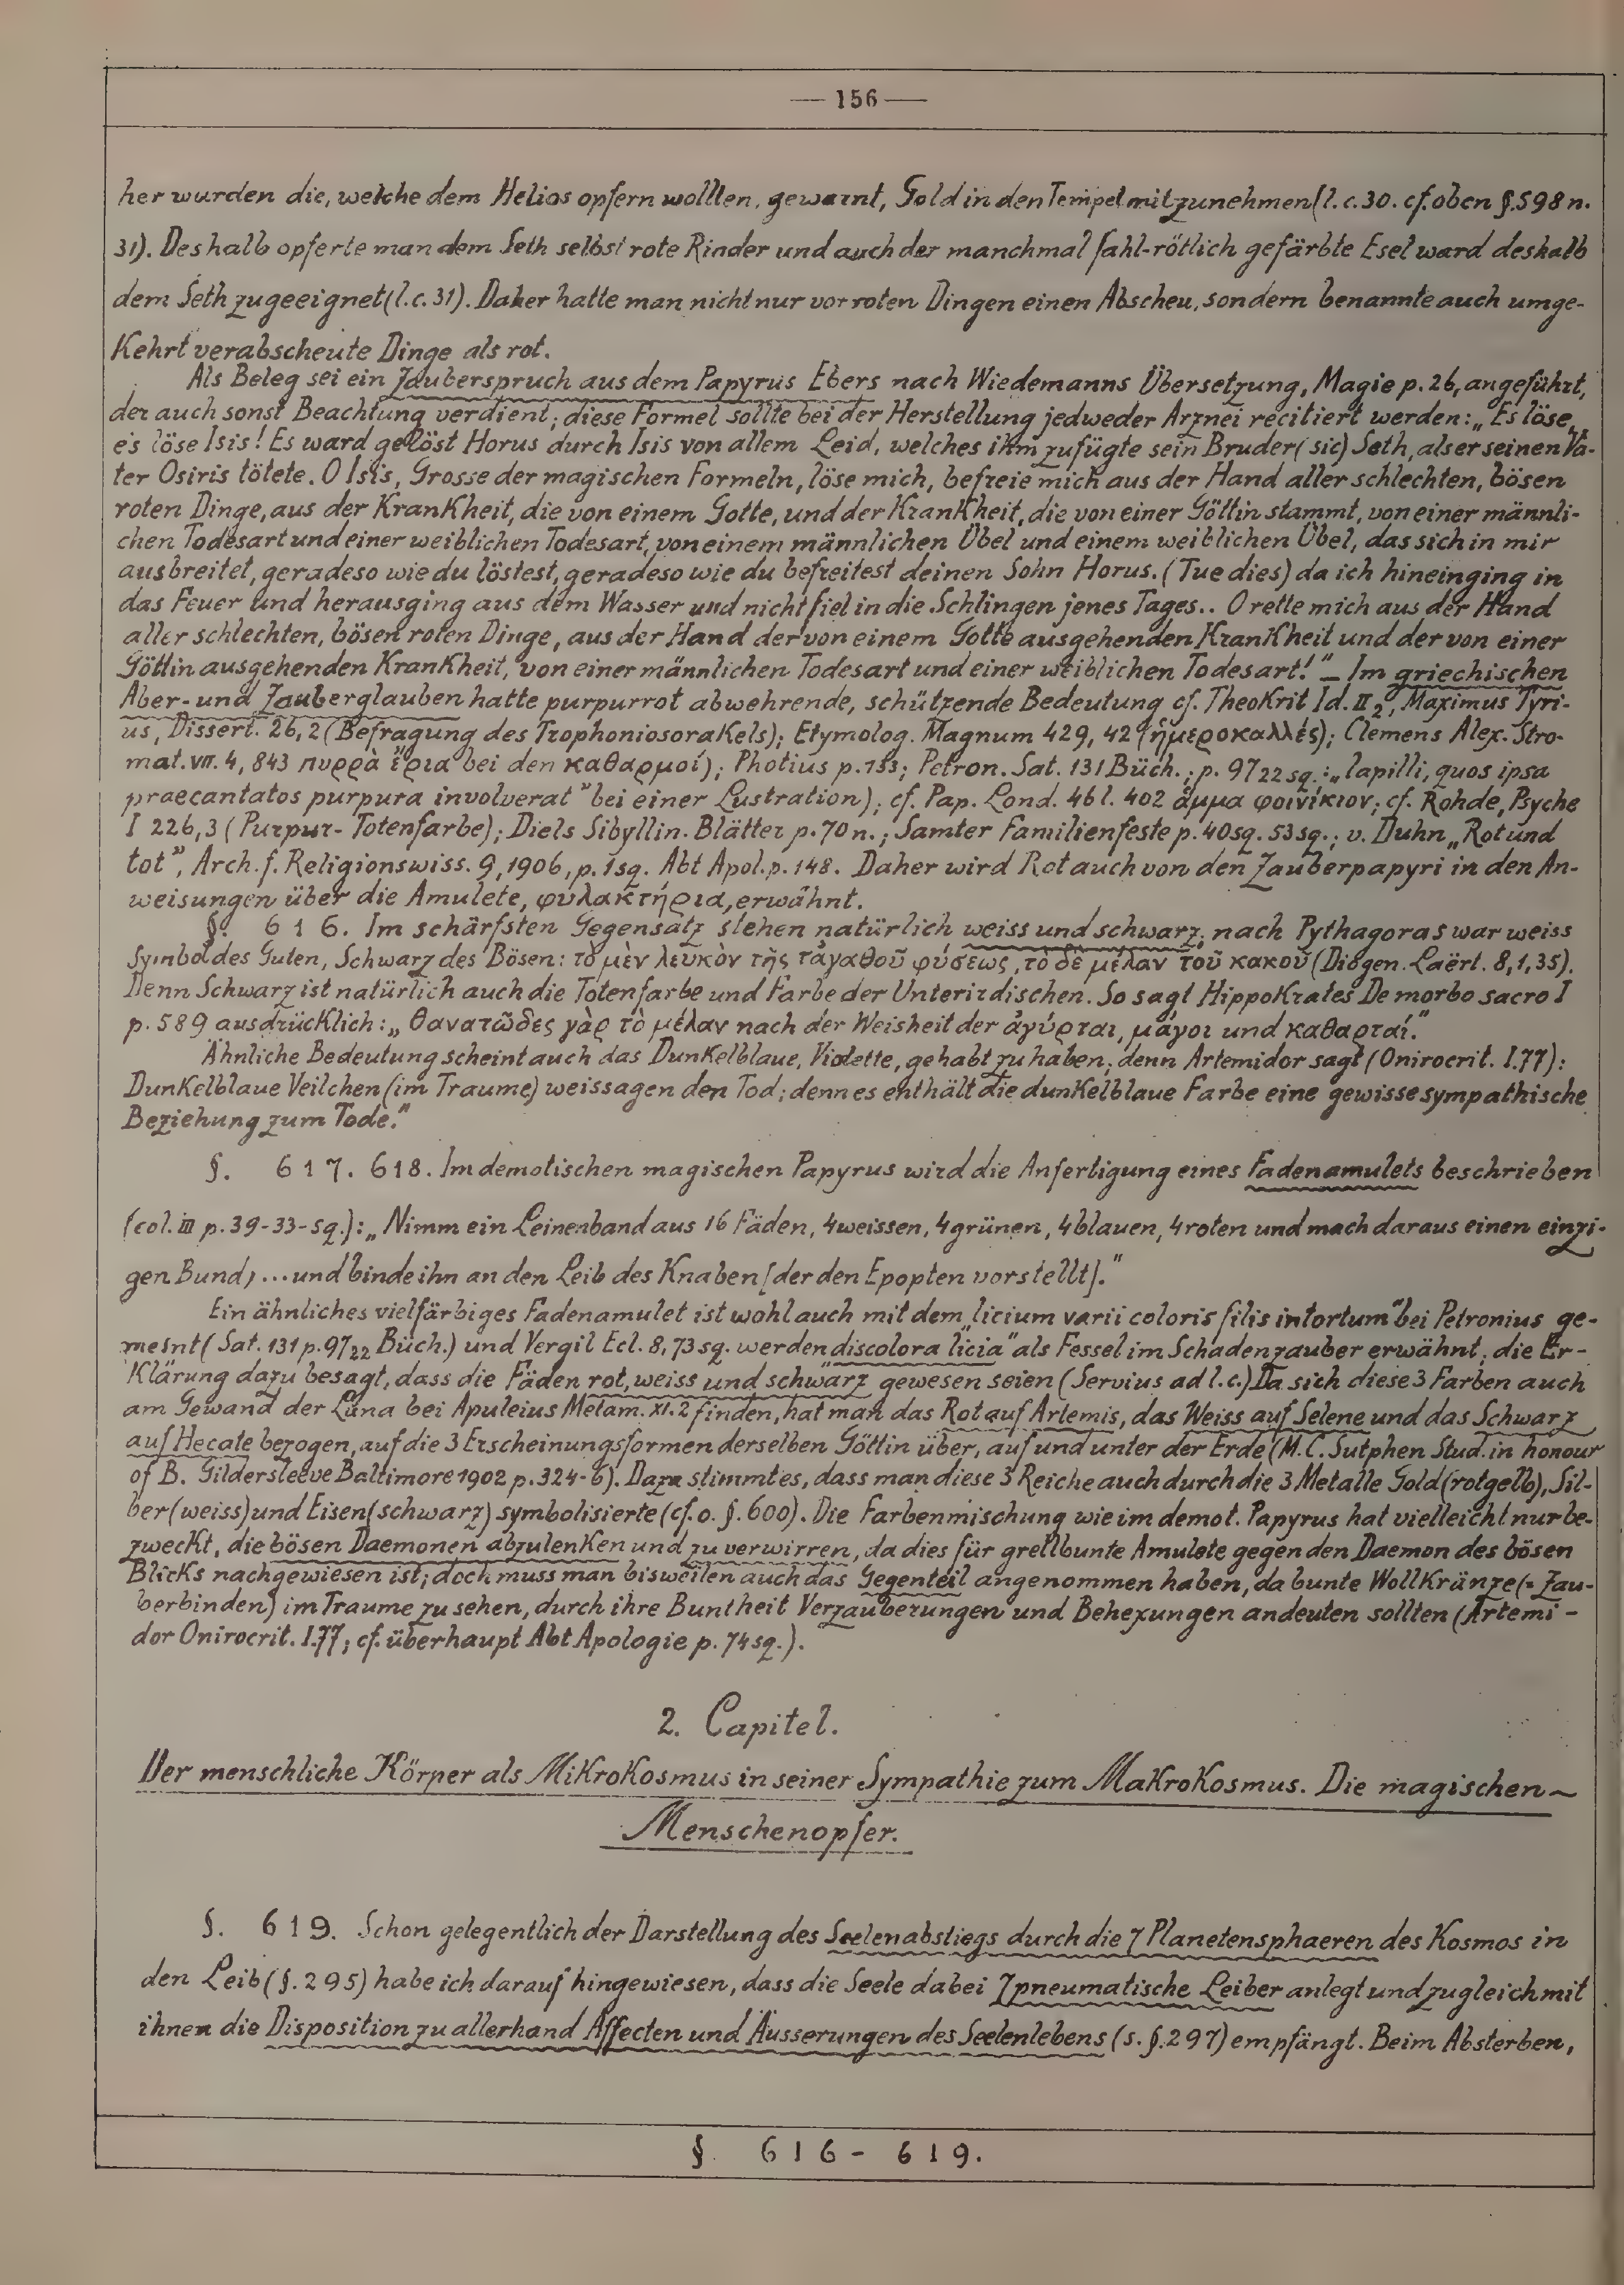 — 156 —
her wurden die, welche dem Helios opfern wollten, gewarnt, Gold in den Tempel mitzunehmen (l. c. 30. cf. oben §. 598 n.
31). Deshalb opferte man dem Seth selbst rote Rinder und auch der manchmal fahl-rötlich gefärbte Esel ward deshalb
dem Seth zugeeignet (l. c. 31). Daher hatte man nicht nur vor roten Dingen einen Abscheu, sondern benannte auch umge-
kehrt verabscheute Dinge als rot.
Als Beleg sei ein Zauberspruch aus dem Papyrus Ebers nach Wiedemanns Übersetzung, Magie p. 26, angeführt,
der auch sonst Beachtung verdient; diese Formel sollte bei der Herstellung jedweder Arznei recitiert werden: „Es löse,
es löse Isis! Es ward gelöst Horus durch Isis von allem Leid, welches ihm zufügte sein Bruder (sic) Seth, als er seinen Va-
ter Osiris tötete. O Isis, Grosse der magischen Formeln, löse mich, befreie mich aus der Hand aller schlechten, bösen
roten Dinge, aus der Krankheit, die von einem Gotte, und der Krankheit, die von einer Göttin stammt, von einer männli-
chen Todesart und einer weiblichen Todesart, von einem männlichen Übel und einem weiblichen Übel, das sich in mir
ausbreitet, geradeso wie du löstest, geradeso wie du befreitest deinen Sohn Horus. (Tue dies) da ich hineinging in
das Feuer und herausging aus dem Wasser und nicht fiel in die Schlingen jenes Tages.. O rette mich aus der Hand
aller schlechten, bösen roten Dinge, aus der Hand der von einem Gotte ausgehenden Krankheit und der von einer
Göttin ausgehenden Krankheit, von einer männlichen Todesart und einer weiblichen Todesart!" — Im griechischen
Aber- und Zauberglauben hatte purpurrot abwehrende, schützende Bedeutung cf. Theokrit Id. II 2, Maximus Tyri-
us, Dissert. 26, 2 (Befragung des Trophoniosorakels); Etymolog. Magnum 429, 42 (ἡμεροκαλλές); Clemens Alex. Stro-
mat. VII. 4, 843 πυρρὰ ἔρια bei den καθαρμοί); Photius p. 153; Petron. Sat. 131 Büch.; p. 97 22 sq.: „lapilli, quos ipsa
praecantatos purpura involverat" bei einer Lustration); cf. Pap. Lond. 46 l. 402 ἅμμα φοινίκιον; cf. Rohde, Psyche
I 226, 3 (Purpur- Totenfarbe); Diels Sibyllin. Blätter p. 70 n.; Samter Familienfeste p. 40 sq. 53 sq.; v. Duhn „Rot und
tot", Arch. f. Religionswiss. 9, 1906, p. 1 sq. Abt Apol. p. 148. Daher wird Rot auch von den Zauberpapyri in den An-
weisungen über die Amulete, φυλακτήρια, erwähnt.
§. 616. Im schärfsten Gegensatz stehen natürlich weiss und schwarz; nach Pythagoras war weiss
Symbol des Guten, Schwarz des Bösen: τὸ μὲν λευκὸν τῆς τἀγαθοῦ φύσεως, τὸ δὲ μέλαν τοῦ κακοῦ (Diogen. Laërt. 8, 1, 35).
Denn Schwarz ist natürlich auch die Totenfarbe und Farbe der Unterirdischen. So sagt Hippokrates De morbo sacro I
p. 589 ausdrücklich: „θανατῶδες γὰρ τὸ μέλαν nach der Weisheit der ἀγύρται, μάγοι und καθαρταί."
Ähnliche Bedeutung scheint auch das Dunkelblaue, Violette, gehabt zu haben; denn Artemidor sagt (Onirocrit. I. 77):
Dunkelblaue Veilchen (im Traume) weissagen den Tod; denn es enthält die dunkelblaue Farbe eine gewisse sympathische
Beziehung zum Tode."
§. 617. 618. Im demotischen magischen Papyrus wird die Anfertigung eines Fadenamulets beschrieben
(col. III p. 39-33-sq.): „Nimm ein Leinenband aus 16 Fäden, 4 weissen, 4 grünen, 4 blauen, 4 roten und mach daraus einen einzi-
gen Bund, ... und binde ihn an den Leib des Knaben [der den Epopten vorstellt]."
Ein ähnliches vielfärbiges Fadenamulet ist wohl auch mit dem „licium varii coloris filis intortum" bei Petronius ge-
meint (Sat. 131 p. 97 22 Büch.) und Vergil Ecl. 8, 73 sq. werden „discolora licia" als Fessel im Schadenzauber erwähnt; die Er-
klärung dazu besagt, dass die Fäden rot, weiss und schwarz gewesen seien (Servius ad l. c.) Da sich diese 3 Farben auch
am Gewand der Luna bei Apuleius Metam. XI. 2 finden, hat man das Rot auf Artemis, das Weiss auf Selene und das Schwarz
auf Hecate bezogen, auf die 3 Erscheinungsformen derselben Göttin über, auf und unter der Erde (M. C. Sutphen Stud. in honour
of B. Gildersleeve Baltimore 1902 p. 324-6). Dazu stimmt es, dass man diese 3 Reiche auch durch die 3 Metalle Gold (rotgelb), Sil-
ber (weiss) und Eisen (schwarz) symbolisierte (cf. o. §. 600). Die Farbenmischung wie im demot. Papyrus hat vielleicht nur be-
zweckt, die bösen Daemonen abzulenken und zu verwirren, da dies für grellbunte Amulete gegen den Daemon des bösen
Blicks nachgewiesen ist; doch muss man bisweilen auch das Gegenteil angenommen haben, da bunte Wollkränze (= Zau-
berbinden) im Traume zu sehen, durch ihre Buntheit Verzauberungen und Behexungen andeuten sollten (Artemi-
dor Onirocrit. I. 77; cf. überhaupt Abt Apologie p. 74 sq.).
2. Capitel.
Der menschliche Körper als Mikrokosmus in seiner Sympathie zum Makrokosmus. Die magischen
Menschenopfer.
§. 619. Schon gelegentlich der Darstellung des Seelenabstiegs durch die 7 Planetensphaeren des Kosmos in
den Leib (§. 295) habe ich darauf hingewiesen, dass die Seele dabei 7 pneumatische Leiber anlegt und zugleich mit
ihnen die Disposition zu allerhand Affecten und Äusserungen des Seelenlebens (s. §. 297) empfängt. Beim Absterben,
§. 616 - 619.